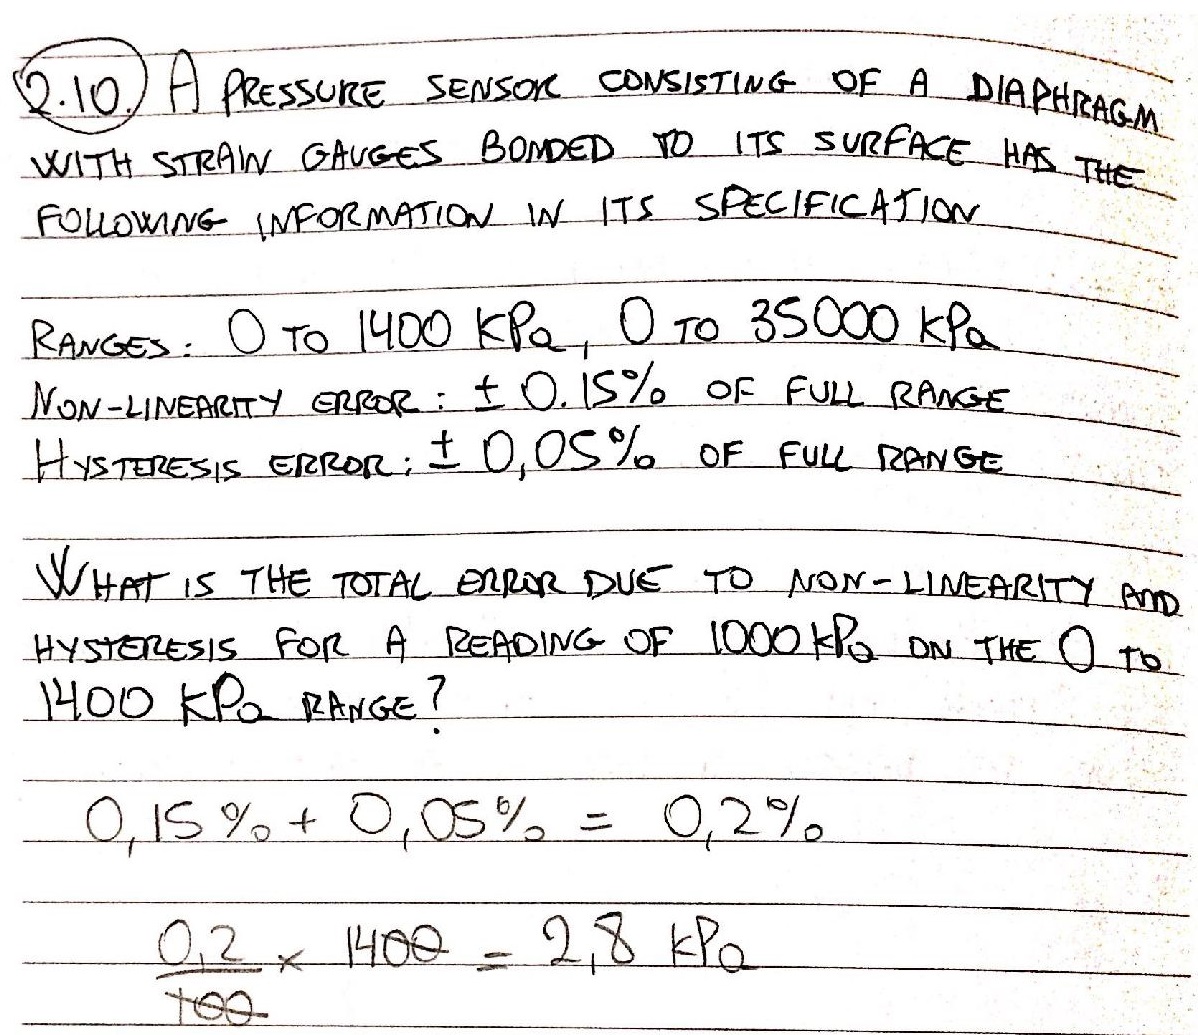 2.10. A PRESSURE SENSOR CONSISTING OF A DIAPHRAGM
WITH STRAIN GAUGES BONDED TO ITS SURFACE HAS THE
FOLLOWING INFORMATION IN ITS SPECIFICATION
RANGES: 0 TO 1400 kPa, 0 TO 35000 kPa
NON-LINEARITY ERROR: ± 0.15% OF FULL RANGE
HYSTERESIS ERROR: ± 0,05% OF FULL RANGE
WHAT IS THE TOTAL ERROR DUE TO NON-LINEARITY AND
HYSTERESIS FOR A READING OF 1000 kPa ON THE 0 TO
1400 kPa RANGE?
0,15% + 0,05% = 0,2%
0,2/100 × 1400 = 2,8 kPa